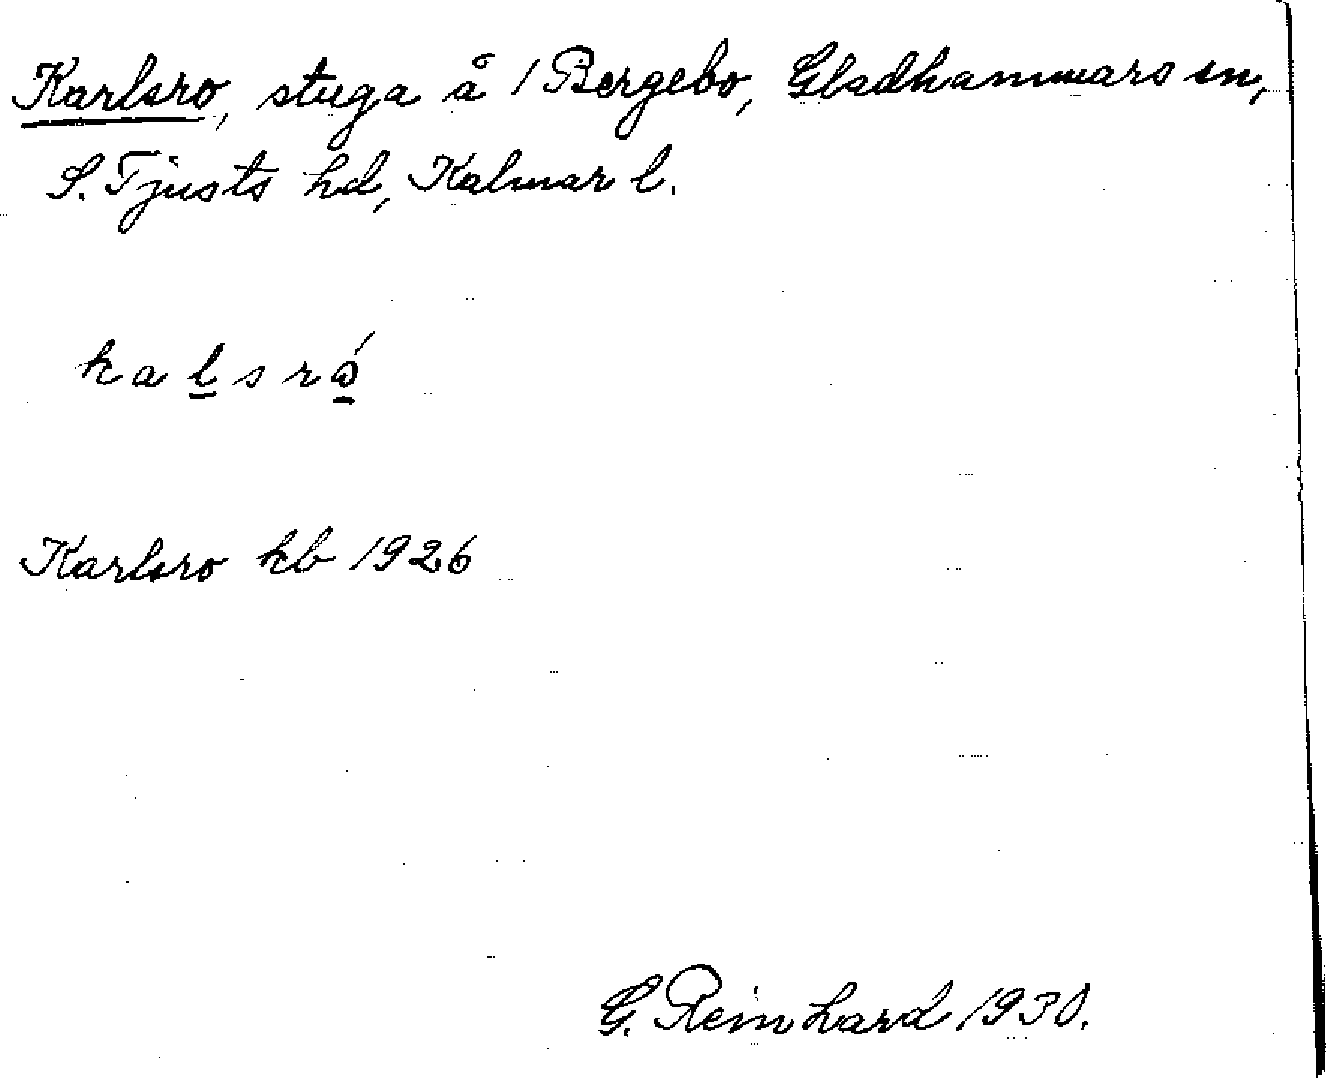 Karlsro, stuga å 1 Bergebo, Gladhammars sn,
S. Tjusts hd, Kalmar l.
kalsró
Karlsro kb 1926
G. Reinhard 1930.